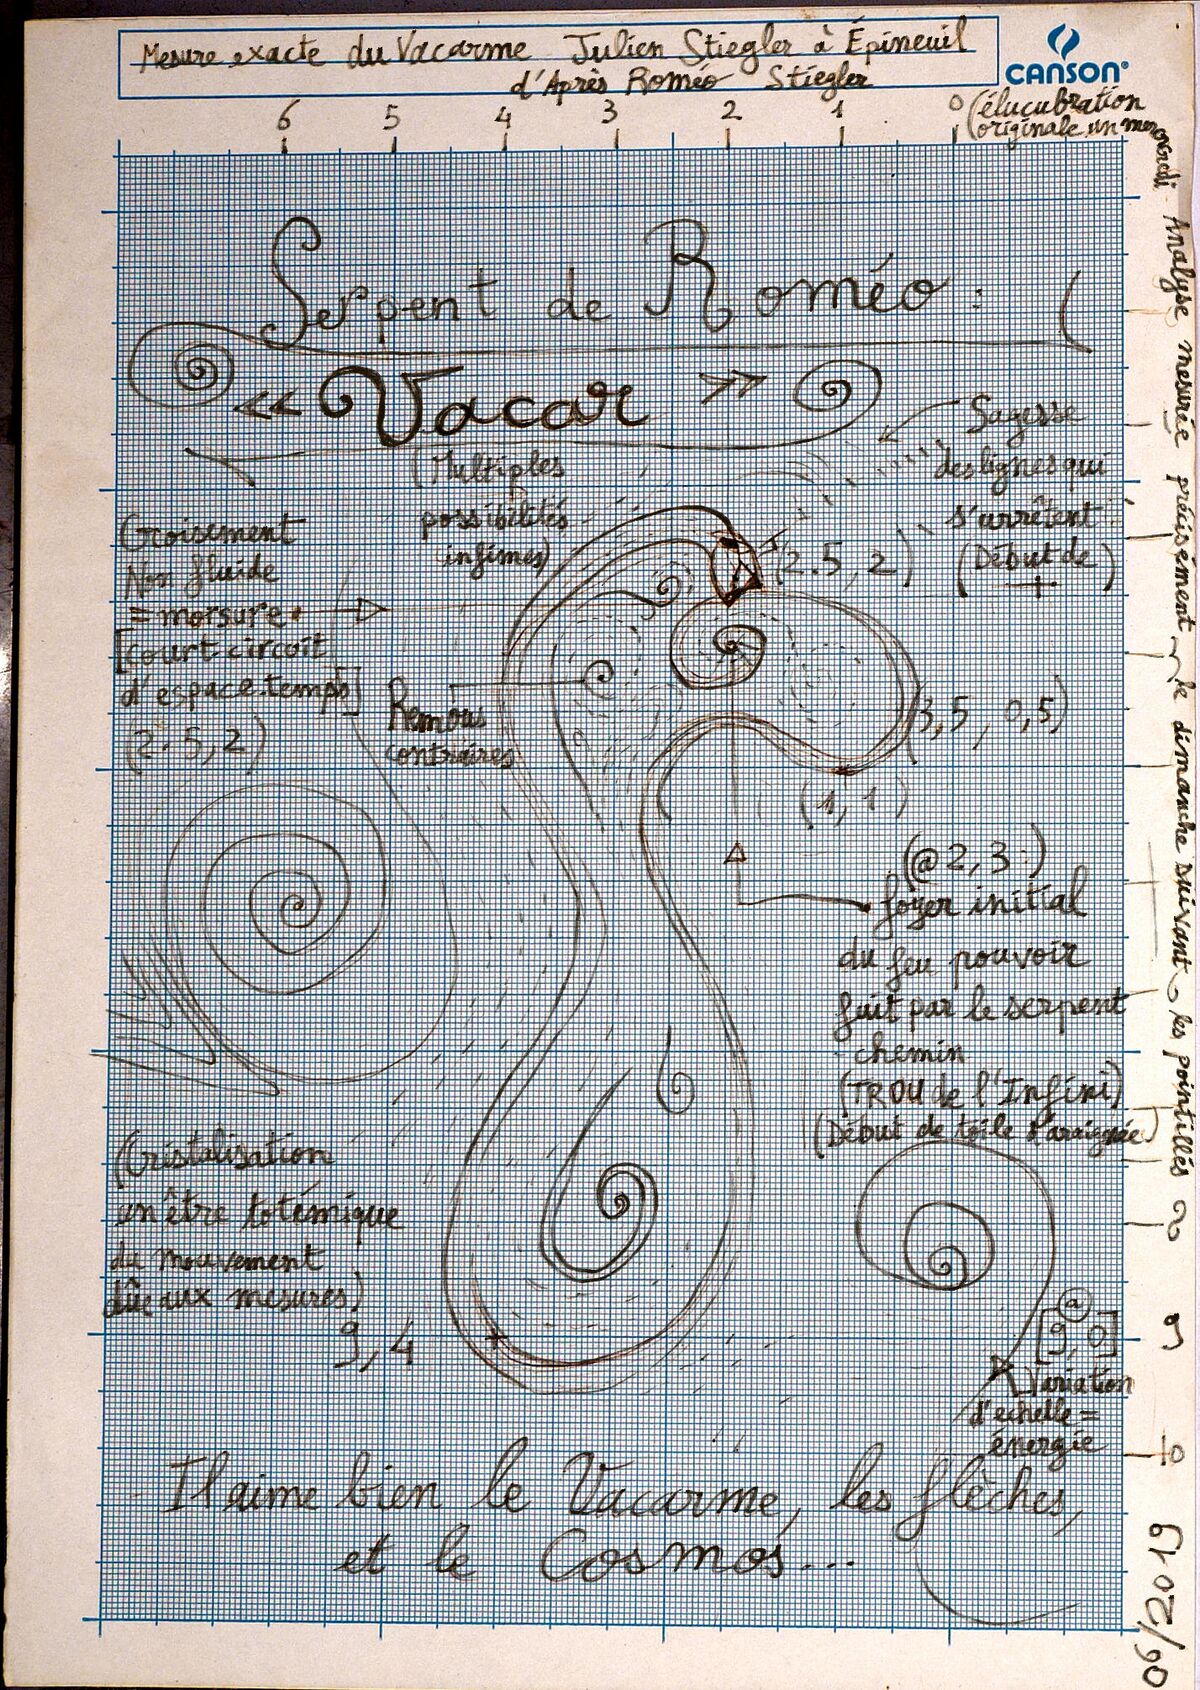 Mesure exacte du Vacarme Julien Stiegler à Épineuil
d'Après Roméo Stiegler
CANSON®
(élucubration
originale un mercredi
6 5 4 3 2 1 0
Serpent de Roméo :
« Vacar »
(Multiples
possibilités
infimes)
Sagesse
des lignes qui
s'arrêtent :
(Début de +)
Croisement
Non fluide
= morsure
[court-circuit
d'espace-temps]
(2.5,2)
(2.5,2)
Remous
contraires
(3,5,0,5)
(1,1)
(@2,3:)
foyer initial
du feu pouvoir
fuit par le serpent
chemin
(TROU de l'Infini)
(Début de toile d'araignée)
(Cristalisation
en être totémique
du mouvement
dûe aux mesures)
9,4
@
[9,0]
Variation
d'echelle =
énergie
Il aime bien le Vacarme, les flèches,
et le Cosmos...
Analyse mesurée précisément le dimanche suivant les pointillés
8
9
10
09/2019